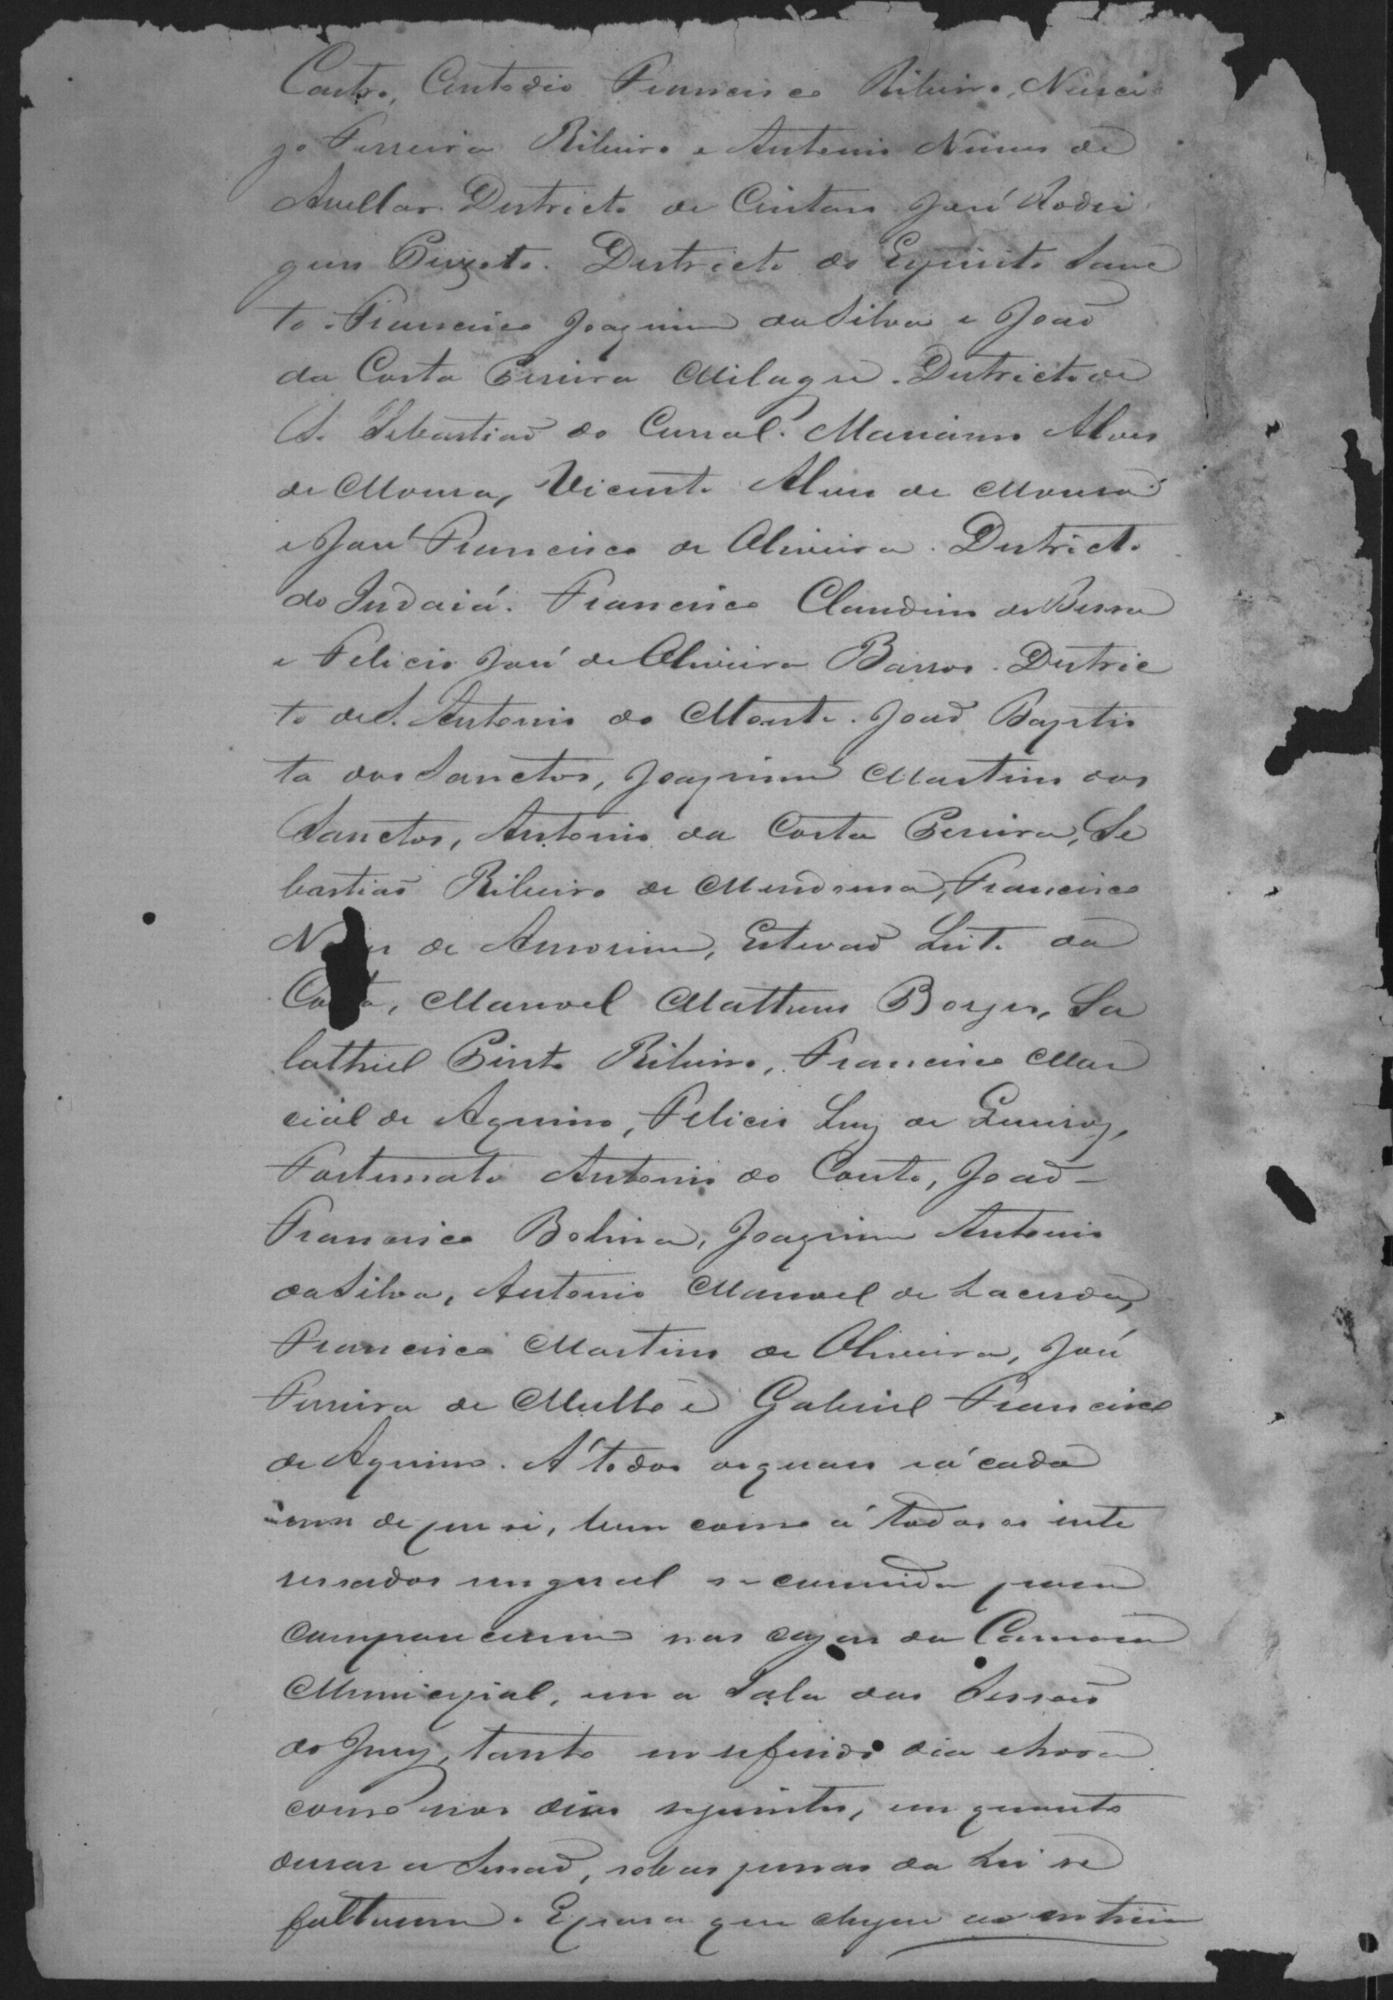 Castro, Custodio Francisco Ribeiro,
Ferreira Ribeiro e Antonio Nunes de
Avellar. Districto de Cintau José Rodri
gues Peixoto. Districto do Espirito Sanc
to. Francisco Joaquim da Silva e João
da Costa Pereira Milagre. Districto de
S. Sebastião do Curral. Marianno Alves
de Moura, Vicente Alves de Moura
e José Francisco de Oliveira. Districto
do Indaiá. Francisco Claudino de Bessa
e Felicio José de Oliveira Barros. Distric
to de S. Antonio do Monte. João Baptis
ta dos Sanctos, Joaquim Martins dos
Sanctos, Antonio da Costa Pereira, Se
bastião Ribeiro de Mendonsa, Francisco
de Amorim, Estevão Leite da
Costa, Manoel Mattheus Borges, Sa
lathiel Pinto Ribeiro, Francisco Mar
cial de Aquino, Felicio Luiz de Queiroz,
Fortunato Antonio do Couto, João
Francisco Bolina, Joaquim Antonio
da Silva, Antonio Manoel de Lacerda,
Francisco Martins de Oliveira, José
Ferreira de Mello e Gabriel Francisco
de Aquino. A' todos os quaes e á cada
um de per si, bem como á todos os inte
ressados em geral se convida para
comparecerem nas cazas da Camara
Municipal, em a Sala das Sessoes
do Jury, tanto no referido dia e hora
como nos dias seguintes, em quanto
durar a Sessão, sob as penas da Lei se
faltarem. E para que chegue ao